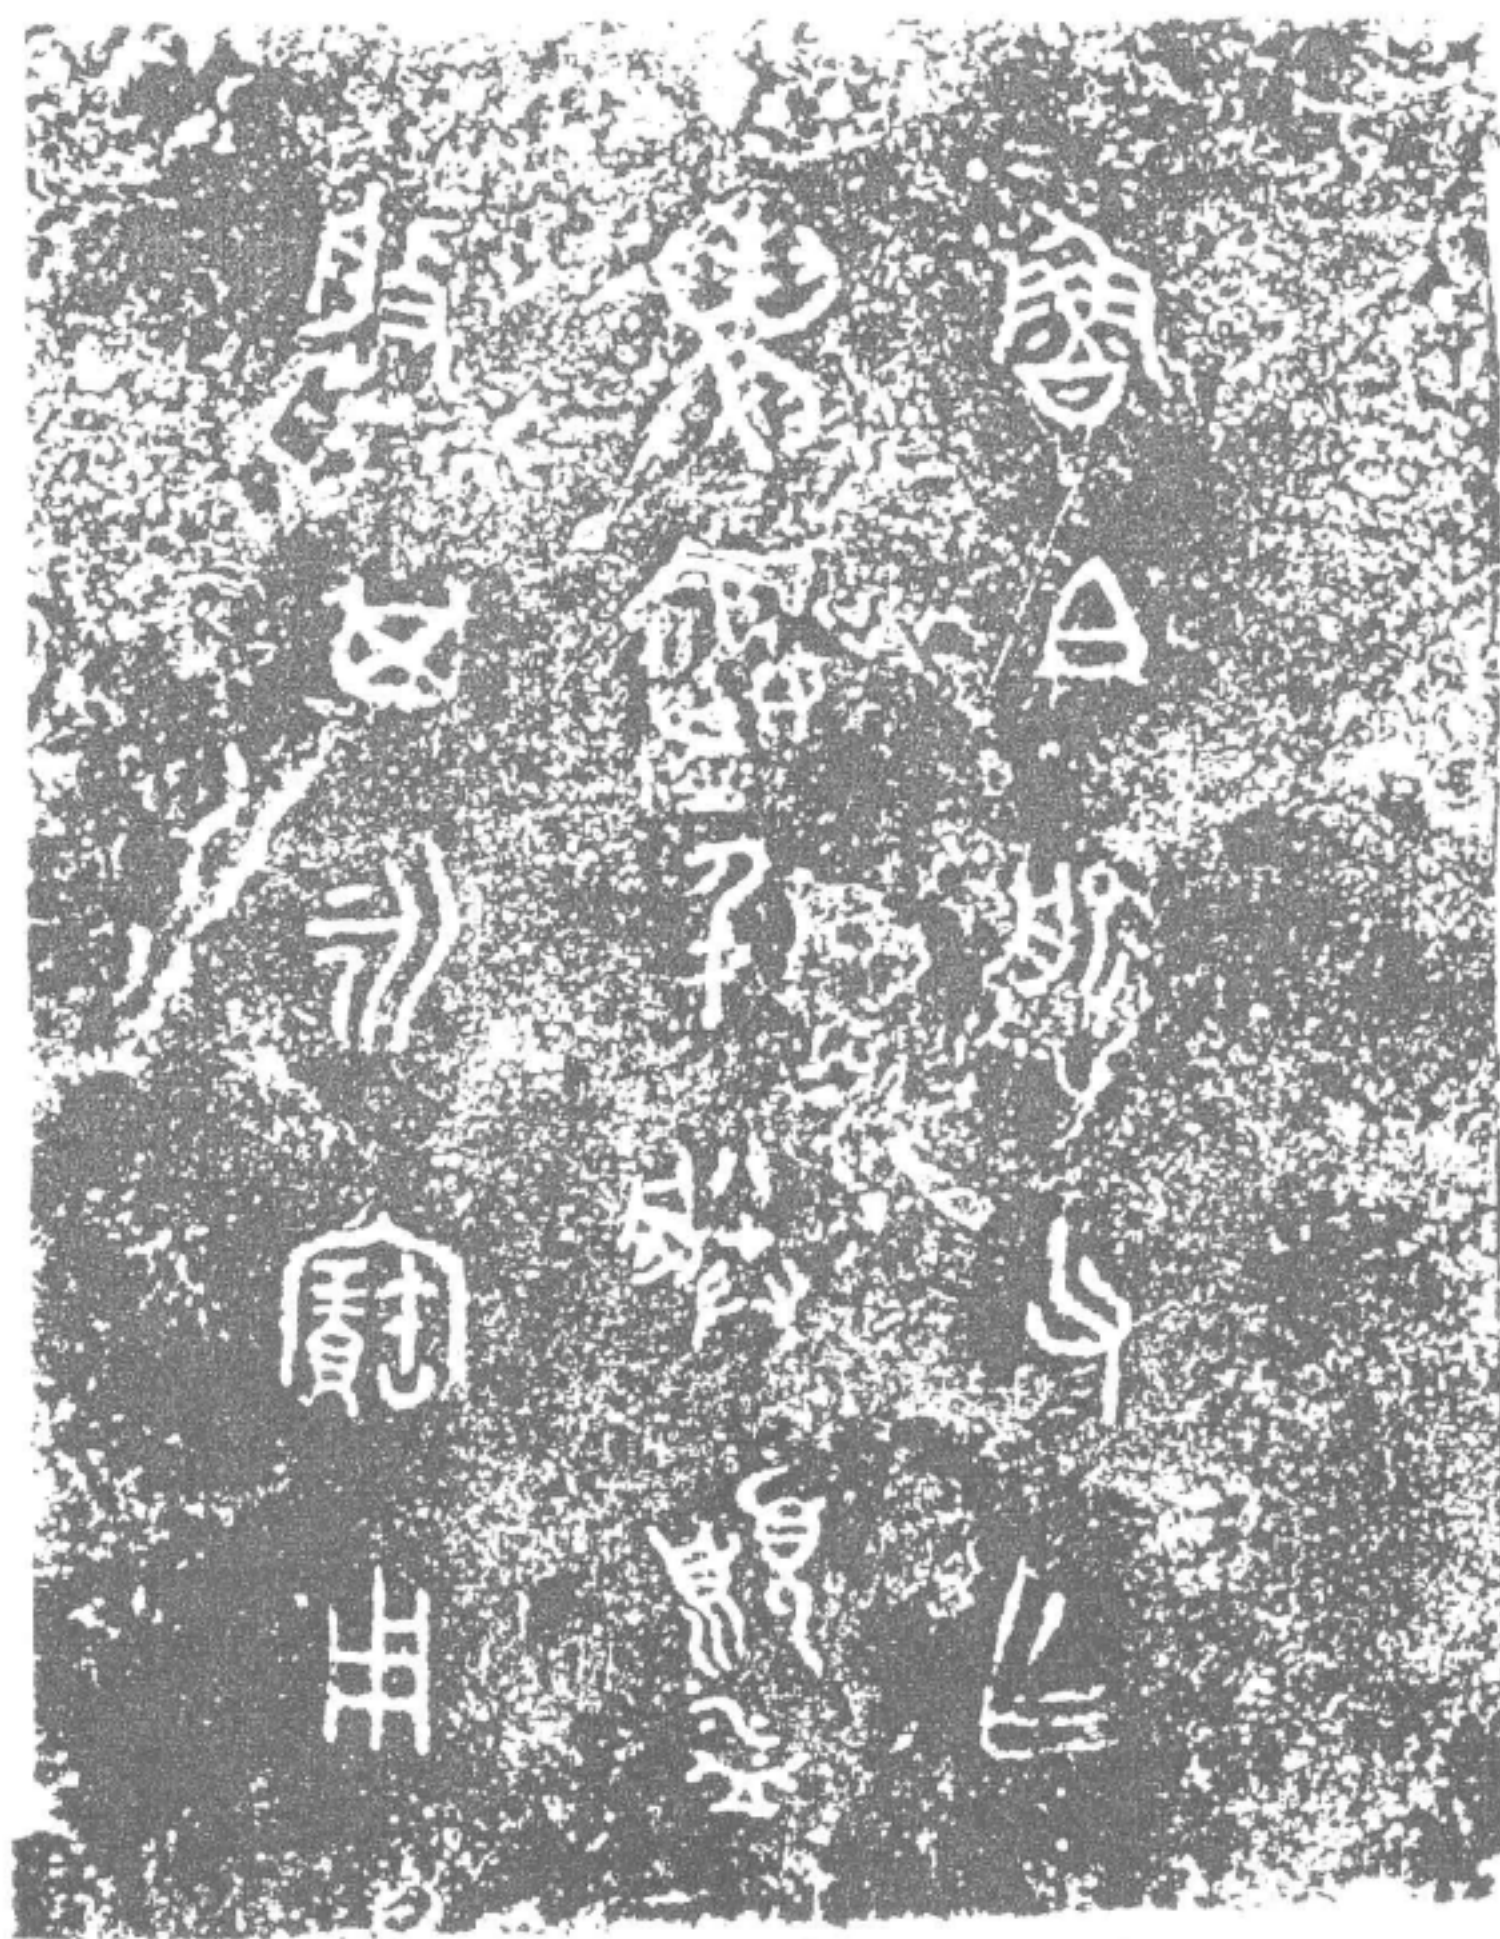 魯白愈父乍
鼄姬仁朕沬
般其永寶用